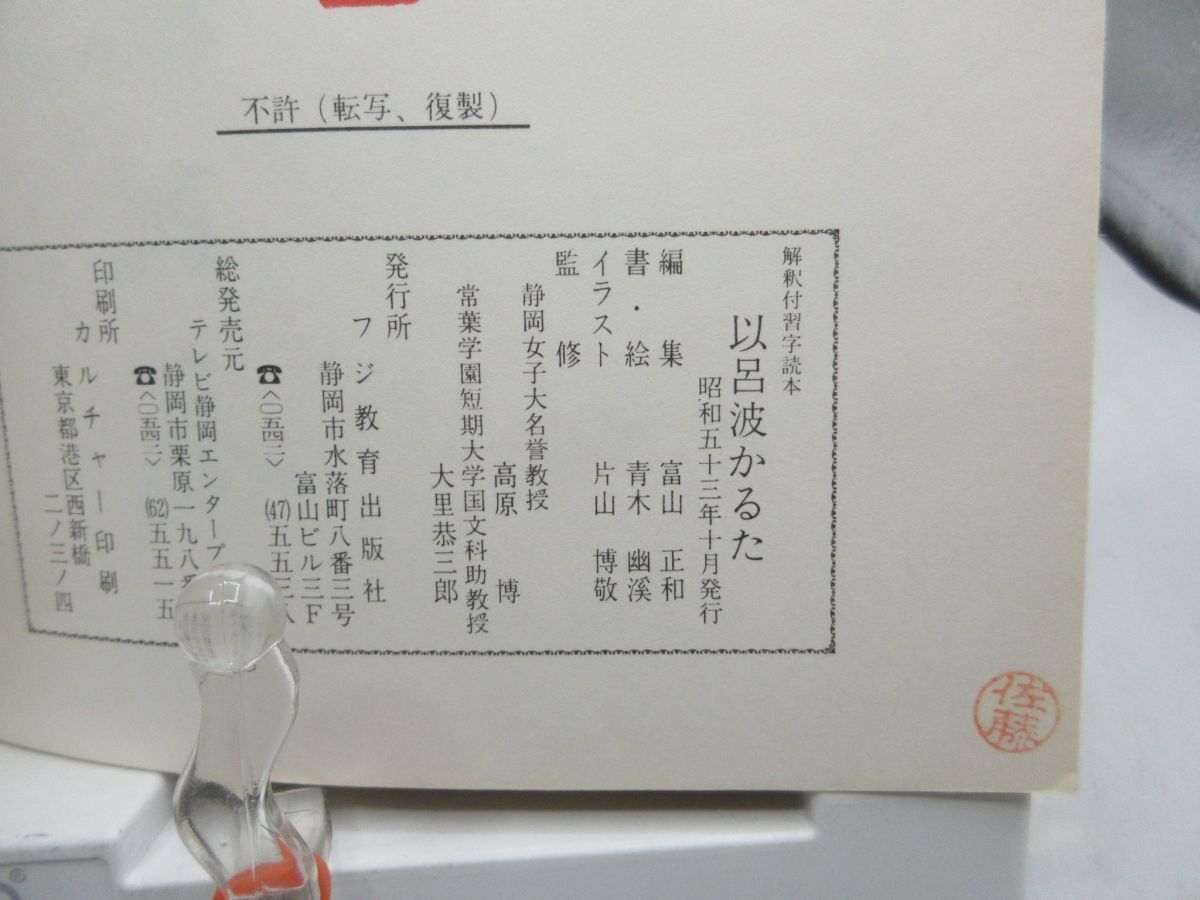 不許（転写、復製）
解釈付習字読本
以呂波かるた
昭和五十三年十月発行
編集 富山 正和
書・絵 青木 幽溪
イラスト 片山 博敬
監修
静岡女子大名誉教授
高原 博
常葉学園短期大学国文科助教授
大里恭三郎
発行所
フジ教育出版社
静岡市水落町八番三号
富山ビル三F
☎〈〇五四二〉(47)五五三
総発売元
テレビ静岡エンタープ
静岡市栗原一九八
☎〈〇五四二〉(62)五五一五
印刷所
カルチャー印刷
東京都港区西新橋
二ノ三ノ四
佐藤